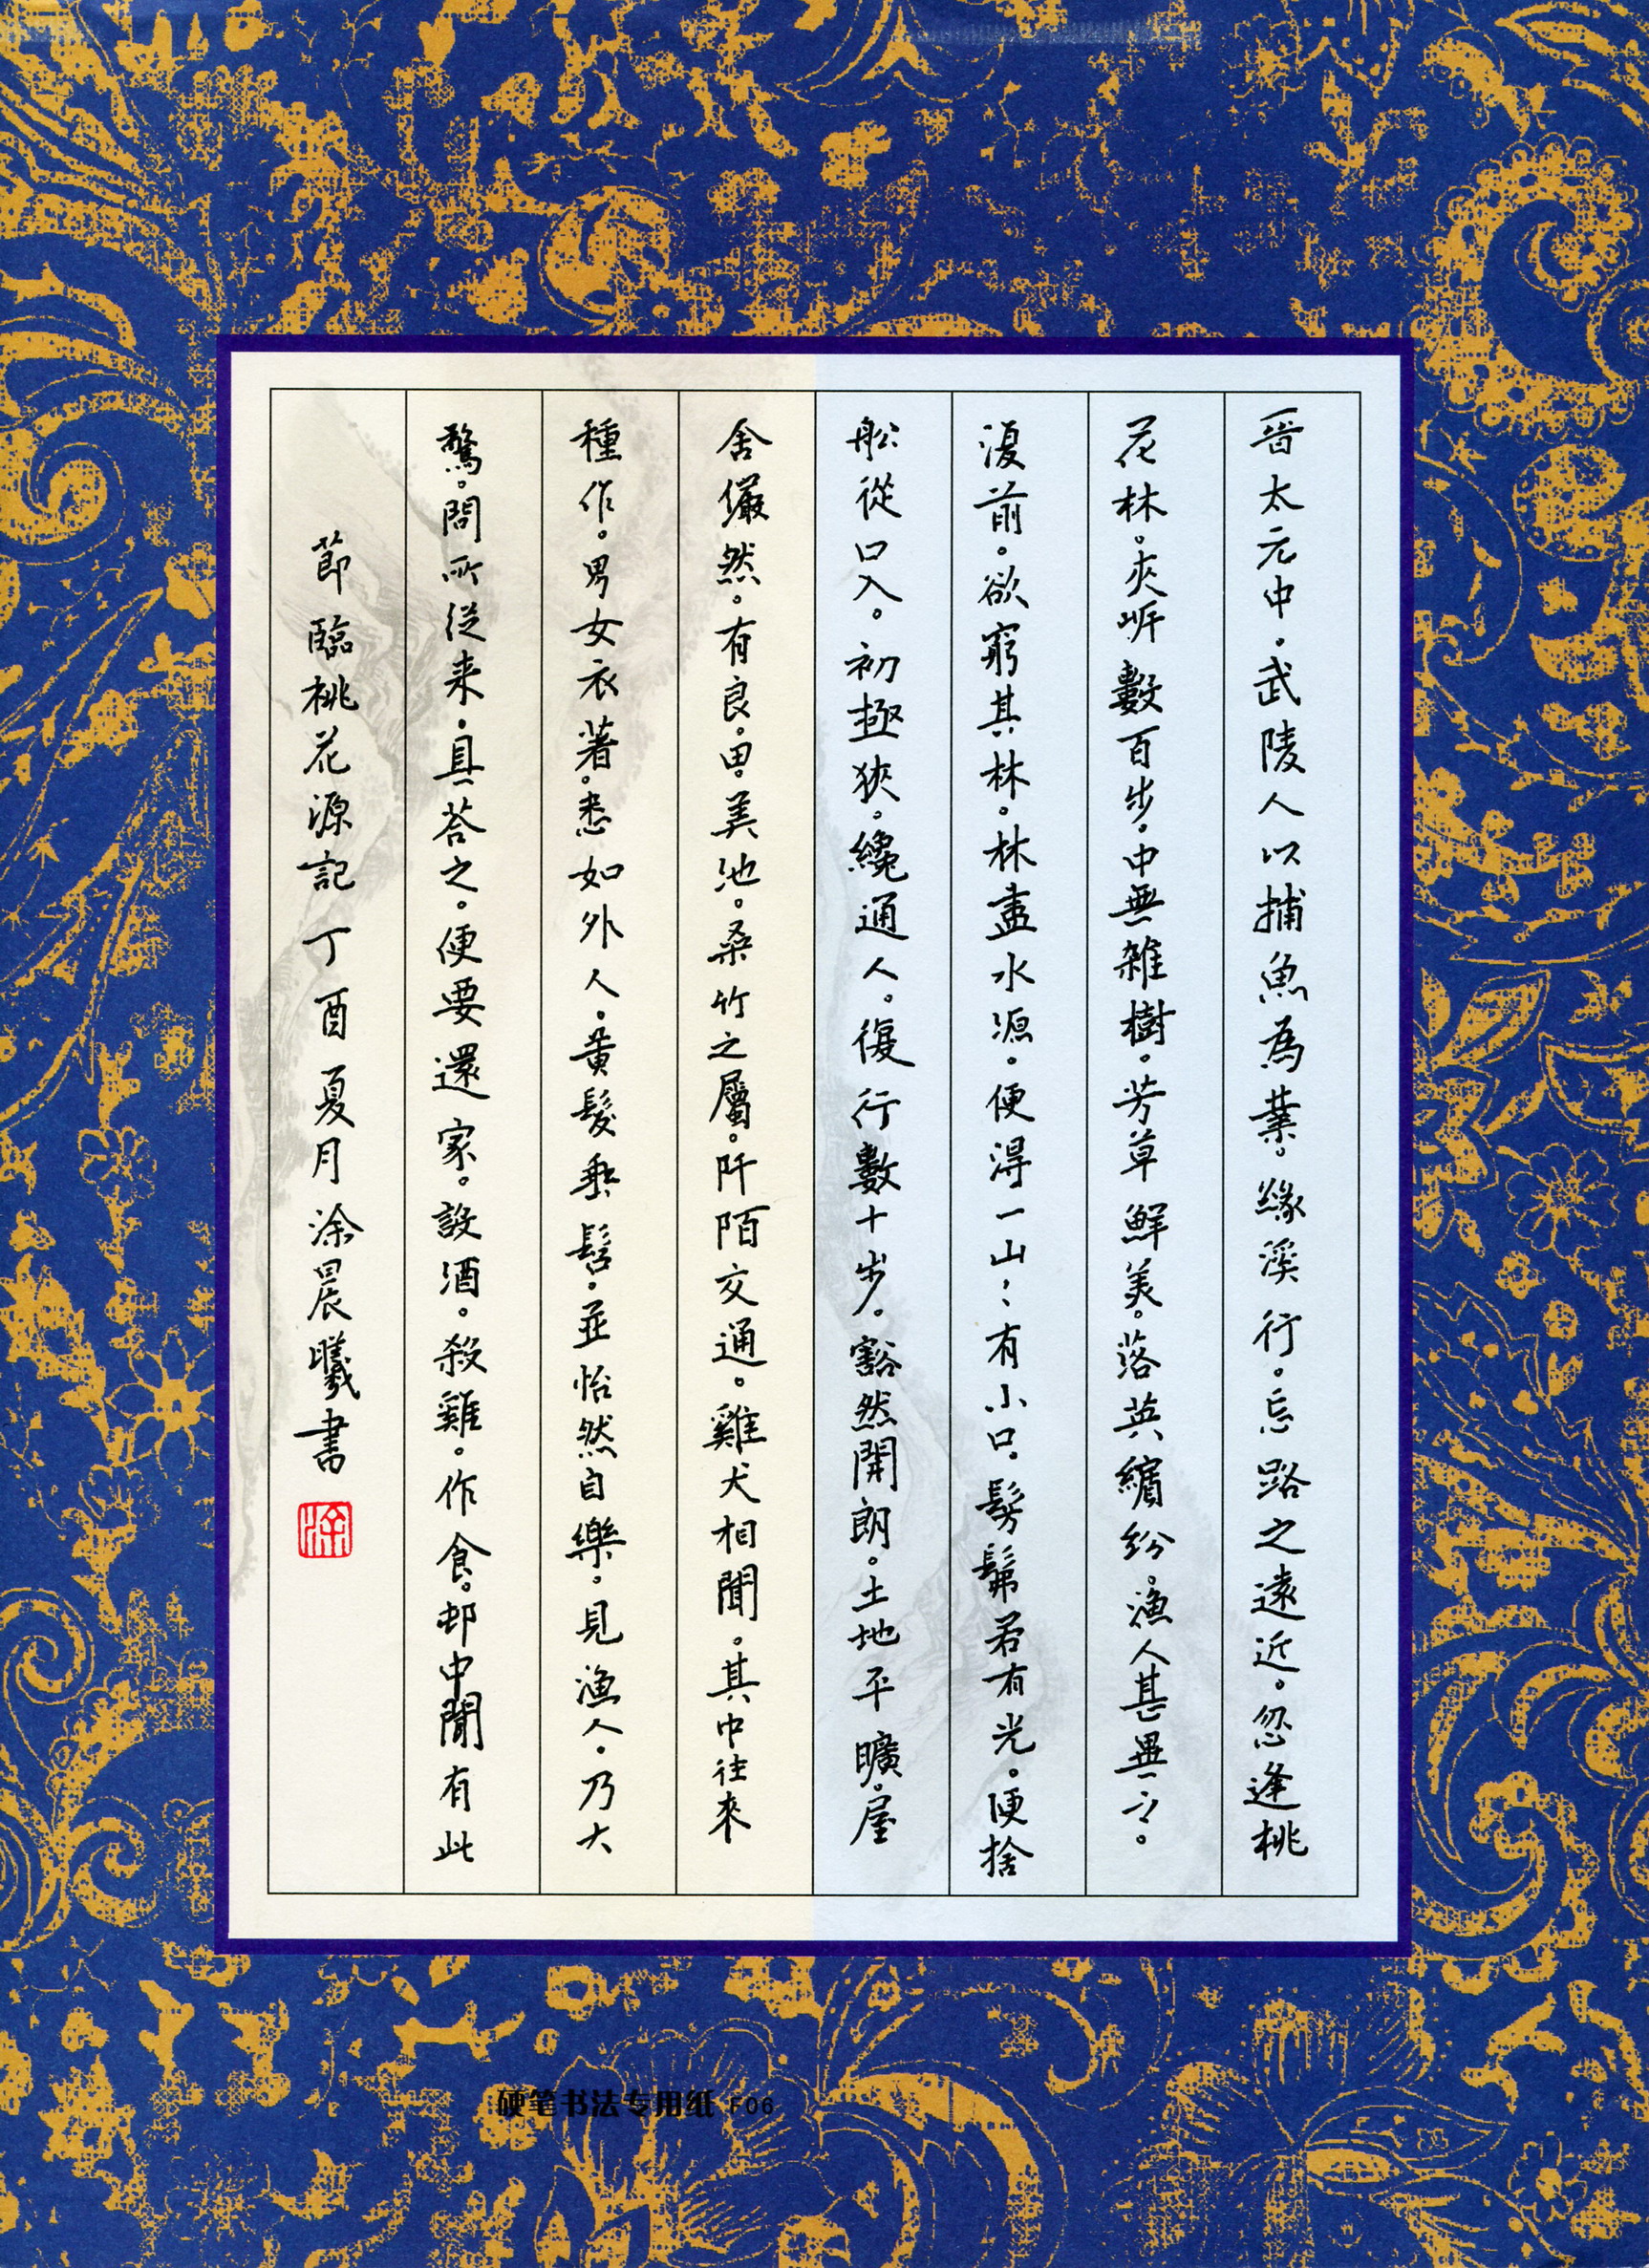 晉太元中。武陵人以捕魚為業。緣溪行。忘路之遠近。忽逢桃
花林。夾岸數百步。中無雜樹。芳草鮮美。落英繽紛。漁人甚異之。
復前。欲窮其林。林盡水源。便得一山〻有小口。髣髴若有光。便捨
船從口入。初極狹。纔通人。復行數十步。豁然開朗。土地平曠。屋
舍儼然。有良。田。美池。桑竹之屬。阡陌交通。雞犬相聞。其中往來
種作。男女衣著。悉如外人。黃髮垂髫。並怡然自樂。見漁人。乃大
驚。問所從来。具荅之。便要還家。設酒。殺雞。作食。邨中聞有此
節臨桃花源記丁酉夏月涂晨曦書
涂
硬笔书法专用纸 F06